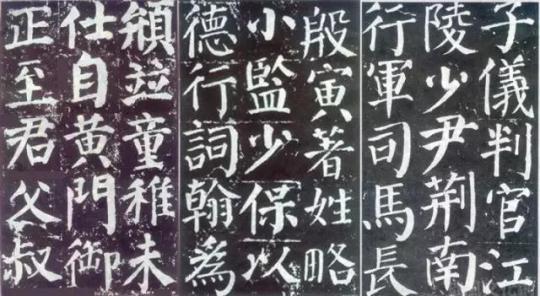 子儀判官江
陵少尹荆南
行軍司馬長
殷寅著姓略
小監少保以
德行詞翰為
竝童稚未
仕自黃門御
正至君父叔